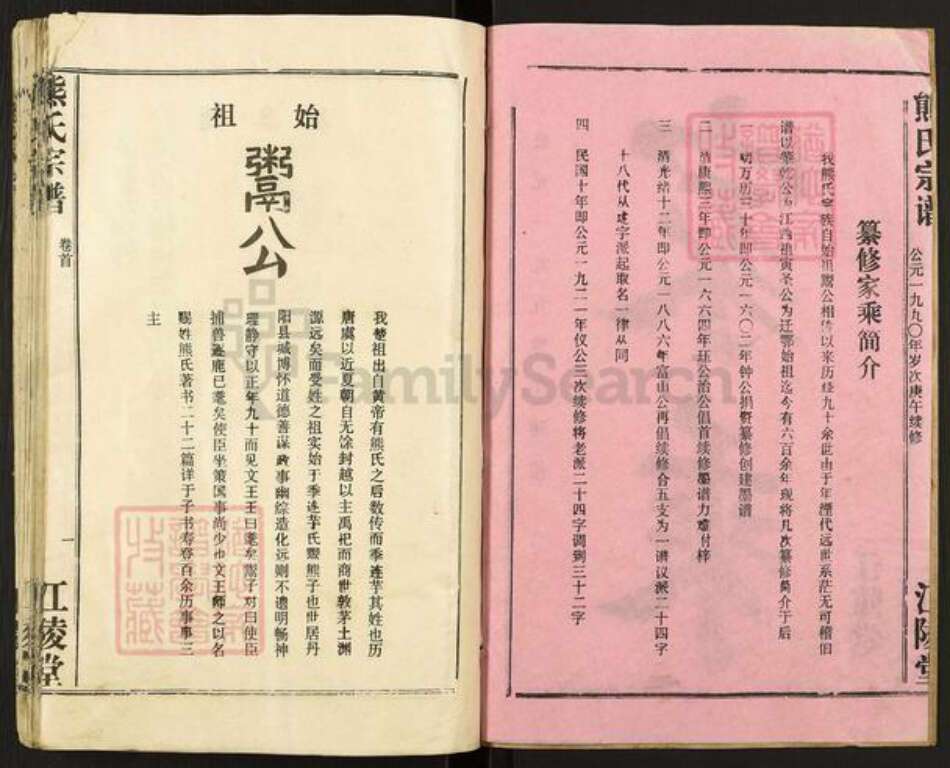 熊氏宗谱
公元一九九〇年岁次庚午续修
江陵堂
纂修家乘简介
我熊氏宗族自始祖鬻公相传以来历经九十余世由于年湮代远世系茫无可稽旧
谱以肇乾公为江西祖寅圣公为迁鄂始祖迄今有六百余年现将几次纂修简介于后
一 明万历三十年即公元一六〇二年钟公捐资纂修创建墨谱
二 清康熙三年即公元一六六四年珏公治公倡首续修墨谱力难付梓
三 清光绪十二年即公元一八八六年富山公再倡续修合五支为一谱议派二十四字
十八代从建字派起取名一律从同
四 民国十年即公元一九二一年仪公三次续修将老派二十四字调到三十二字
始祖
鬻公
我楚祖出自黄帝有熊氏之后数传而季连芈其姓也历
唐虞以近夏朝自无馀封越以主禹祀而商世敦茅土渊
源远矣而受姓之祖实始于季连芈氏鬻熊子也世居丹
阳县城博怀道德善谋政事幽综造化远则不遗明畅神
理静守以正年九十而见文王王曰耄矣鬻子对曰使臣
捕兽逐鹿已耄矣使臣坐策国事尚少也文王师之以名
赐姓熊氏著书二十二篇详于子书寿登百余历事事三
主
熊氏宗谱
卷首
一
江陵堂
FamilySearch